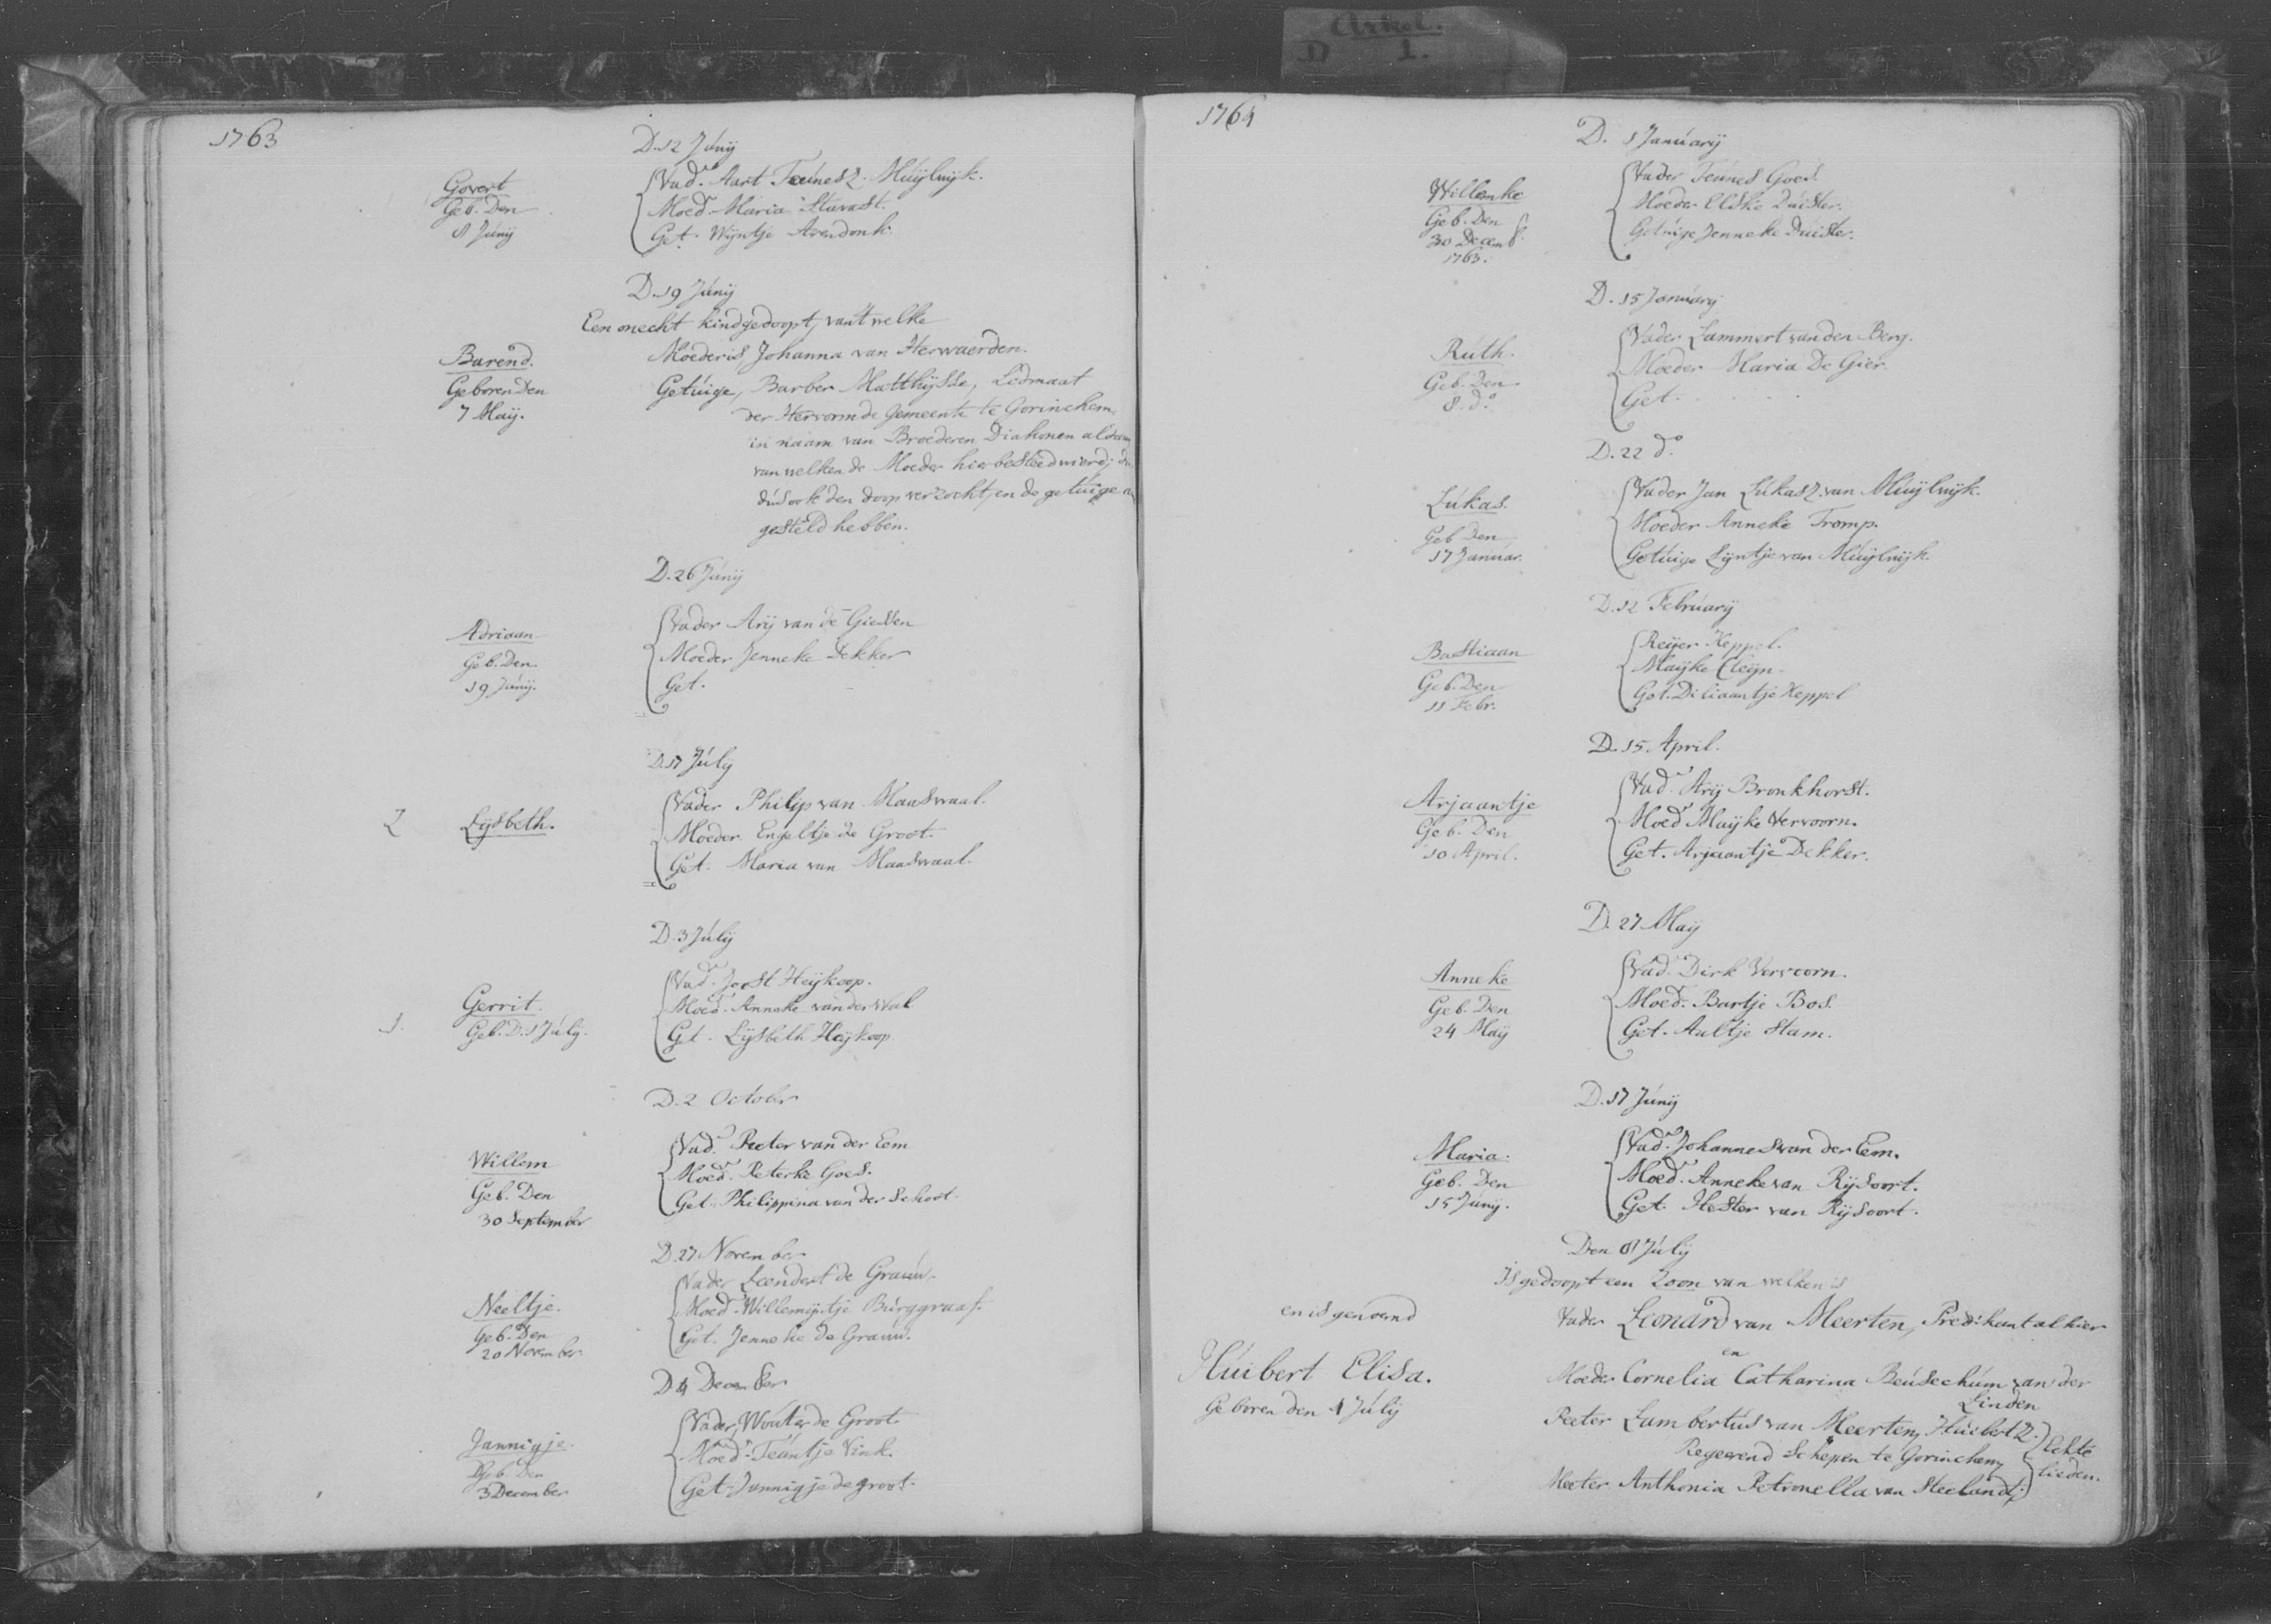 Arkel.
D 1.
1763
D. 12 Júnij
Govert
Geb. Den
8 Júnij
Vad.r Aart Teúnesz. Múijlwijk.
Moed.r Maria
Get. Wijntje Arendonk.
D. 19 Júnij
Een onecht kind gedoopt, van 't welke
Barend.
Geboren Den
7 Maij.
Moeder is Johanna van Herwaerden.
Getúige, Barber Matthijsse, Ledmaat
der Hervormde Gemeente te Gorinchem,
in naam van Broederen Diakonen aldaar
van welken de Moeder hier besteed wierd; 
dús ook den doop verzocht, en de getúige
gesteld hebben.
D. 26 Júnij
Adriaan
Geb. Den
19 Júnij.
Vader Arij van de Giessen
Moeder Jenneke Dekker
Get.
D. 17 Júlij
2 Lijsbeth.
Vader Philip van Maaswaal.
Moeder Engeltje de Groot.
Get. Maria van Maaswaal.
D. 3 Júlij
1. Gerrit.
Geb. D. 1 Júlij.
Vad.r Joost Heijkoop.
Moed.r Anneke van der Wal
Get. Lijsbeth Heijkoop
D. 2 October
Willem
Geb. Den
30 September
Vad.r Peeter van der Eem
Moed.r Peterke Goes.
Get. Philippina van der Schoot.
D. 27 November
Neeltje.
Geb. Den
20 November.
Vader Leendert de Graúw
Moed.r Willemijntje Búrggraaf.
Get. Jenneke de Graúw.
D. 4 December
Jannigje.
Geb. Den
3 December
Vader, Woúter de Groot
Moed.r Teúntje Vink.
Get. Jannigje de groot.
1764
D. 1 Janúarij
Willemke
Geb. Den
30 Decemb.
1763.
Vader Teúnes Goes.
Moeder Elske Dúister.
Getúige Jenneke Dúister.
D. 15 Janúarij
Rúth.
Geb. Den
8 d.o
Vader Lammert van den Berg.
Moeder Maria De Gier
Get. . . . . .
D. 22 d.o
Lúkas.
Geb Den
17 Janúar.
Vader Jan Lúkasz. van Múijlwijk.
Moeder Anneke Tromp.
Getúige Lijntje van Múijlwijk.
D. 12 Febrúarij
Bastiaan
Geb. Den
11 Febr.
Reijer Keppel.
Maijke Cleijn
Get. Diliaantje Keppel
D. 15 April.
Arjaantje
Geb. Den
10 April.
Vad.r Arij Bronkhorst.
Moed.r Maijke Vervoorn.
Get. Arjaantje Dekker.
D. 27 Maij
Anneke
Geb. Den
24 Maij
Vad.r Dirk Vervoorn.
Moed.r Bartje Bos.
Get. Aaltje Stam.
D. 17 Júnij
Maria.
Geb. Den
15 Júnij.
Vad.r Johannes van der Eem.
Moed.r Anneke van Rijsoort.
Get. Hester van Rijsoort.
Den 8 Júlij
Is gedoopt een Zoon van welken is
en is genoemd
Vader Leonard van Meerten, Predikant alhier
en
Húibert Elisa.
Geboren den 1 Júlij
Moeder Cornelia Catharina Beúsechúm van der
Linden
Peeter Lambertús van Meerten, Húibertz.
Regeerend Schepen te Gorinchem,
Meeter Anthonia Petronella van Steelandt;
Echte
lieden.